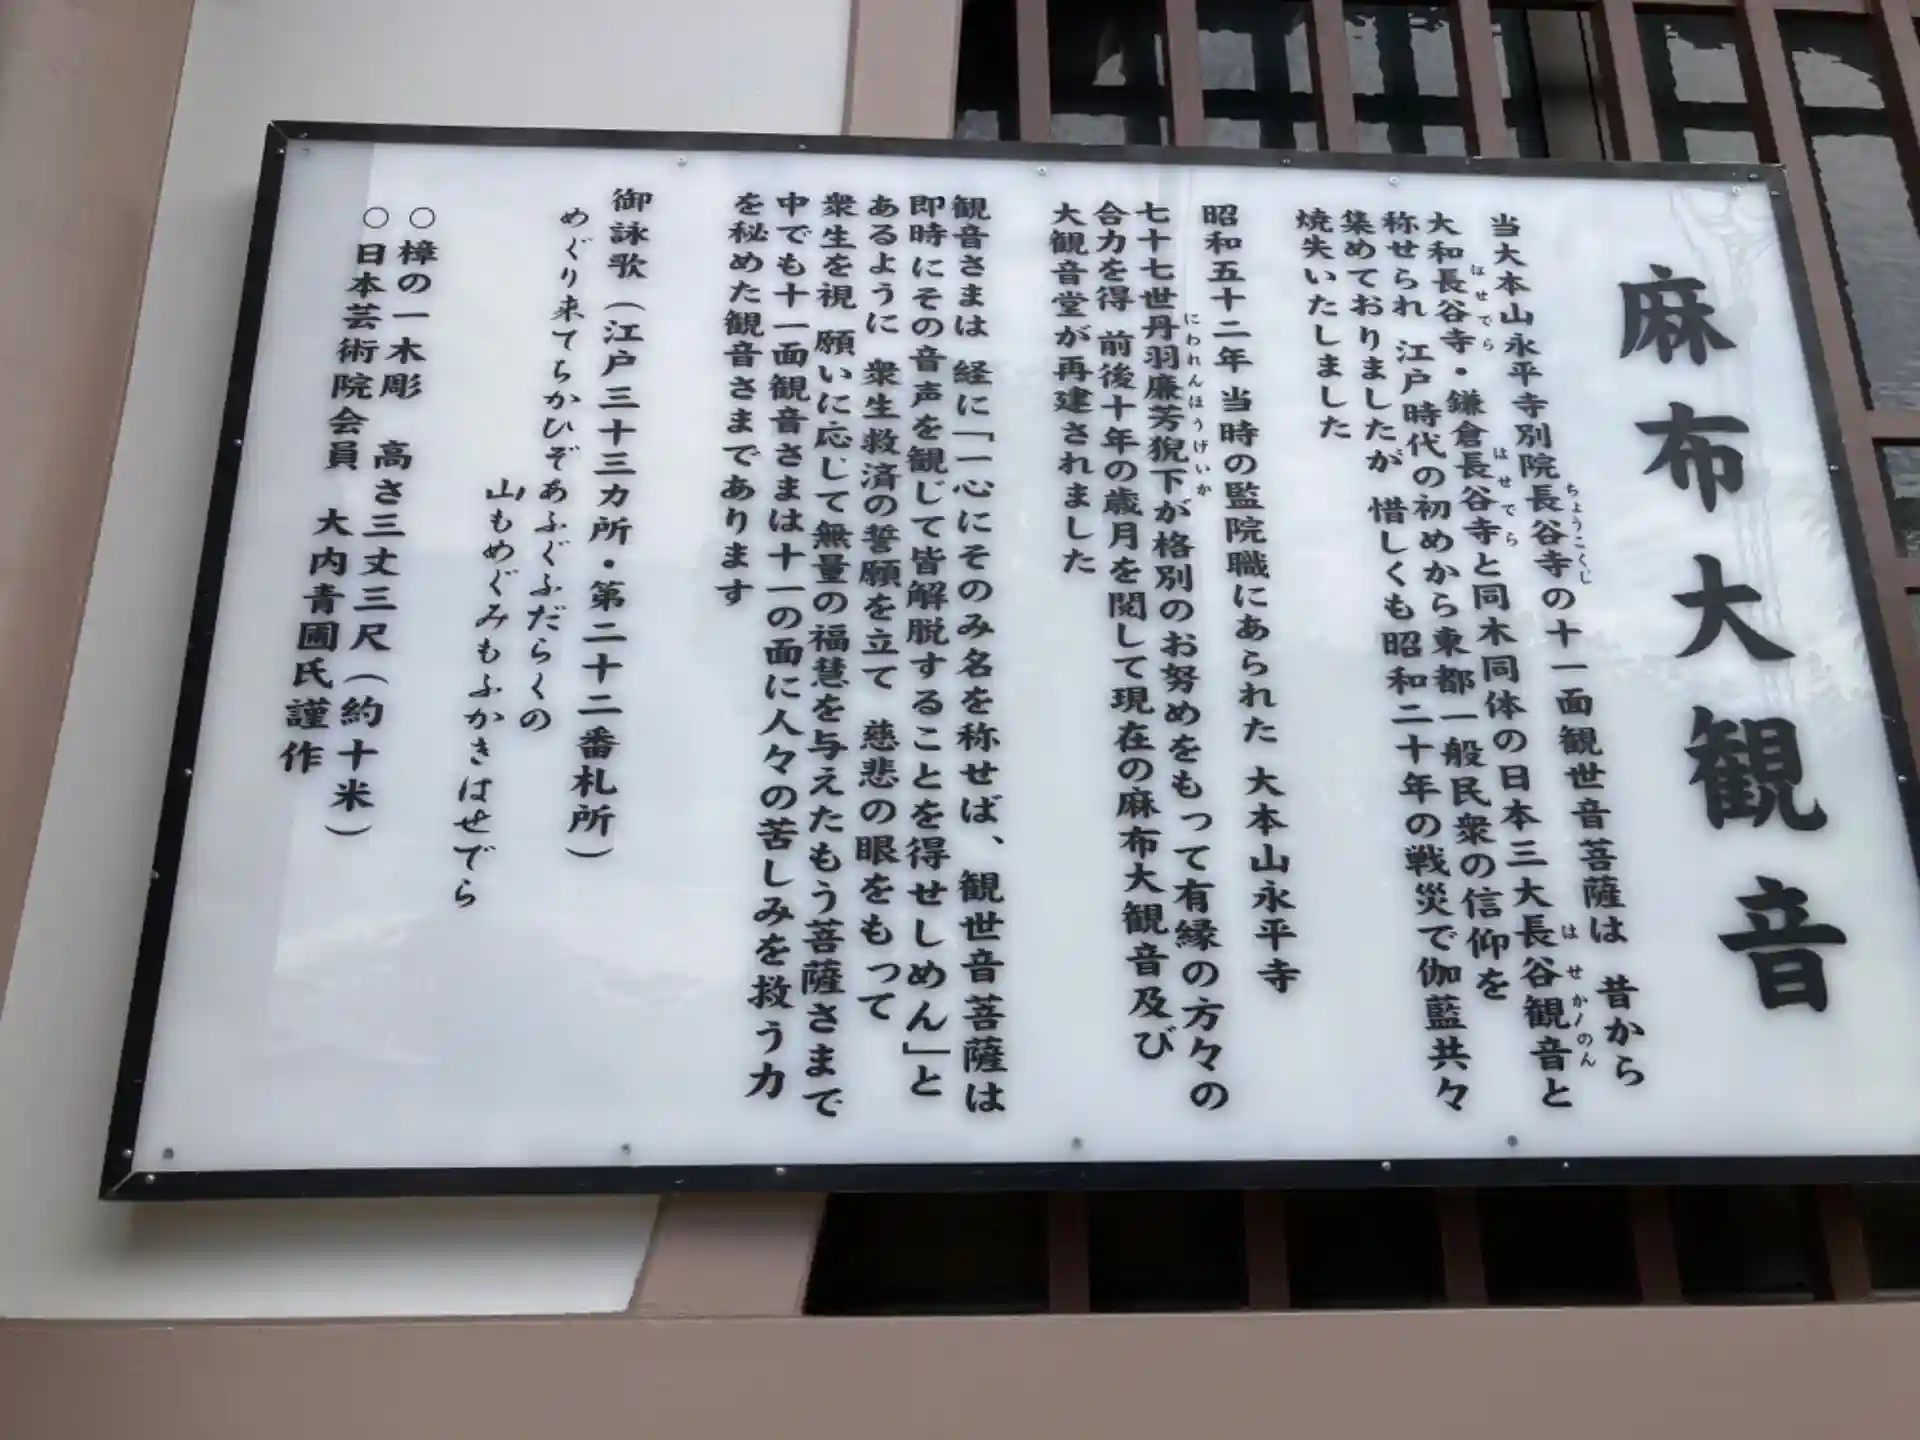 麻布大観音
当大本山永平寺別院長谷寺の十一面観世音菩薩は 昔から
ちょうこくじ
大和長谷寺・鎌倉長谷寺と同木同体の日本三大長谷観音と
はせでら はせでら はせかんのん
称せられ 江戸時代の初めから東都一般民衆の信仰を
集めておりましたが 惜しくも昭和二十年の戦災で伽藍共々
焼失いたしました
昭和五十二年 当時の監院職にあられた 大本山永平寺
七十七世丹羽廉芳猊下が格別のお努めをもって有縁の方々の
にわれんほうげいか
合力を得 前後十年の歳月を閲して現在の麻布大観音及び
大観音堂が再建されました
観音さまは 経に「一心にそのみ名を称せば、観世音菩薩は
即時にその音声を観じて皆解脱することを得せしめん」と
あるように 衆生救済の誓願を立て 慈悲の眼をもって
衆生を視 願いに応じて無量の福慧を与えたもう菩薩さまで
中でも十一面観音さまは十一の面に人々の苦しみを救う力
を秘めた観音さまであります
御詠歌(江戸三十三カ所・第二十二番札所)
めぐり来てちかひぞあふぐふだらくの
山もめぐみもふかきはせでら
○樟の一木彫 高さ三丈三尺(約十米)
○日本芸術院会員 大内青圃氏謹作